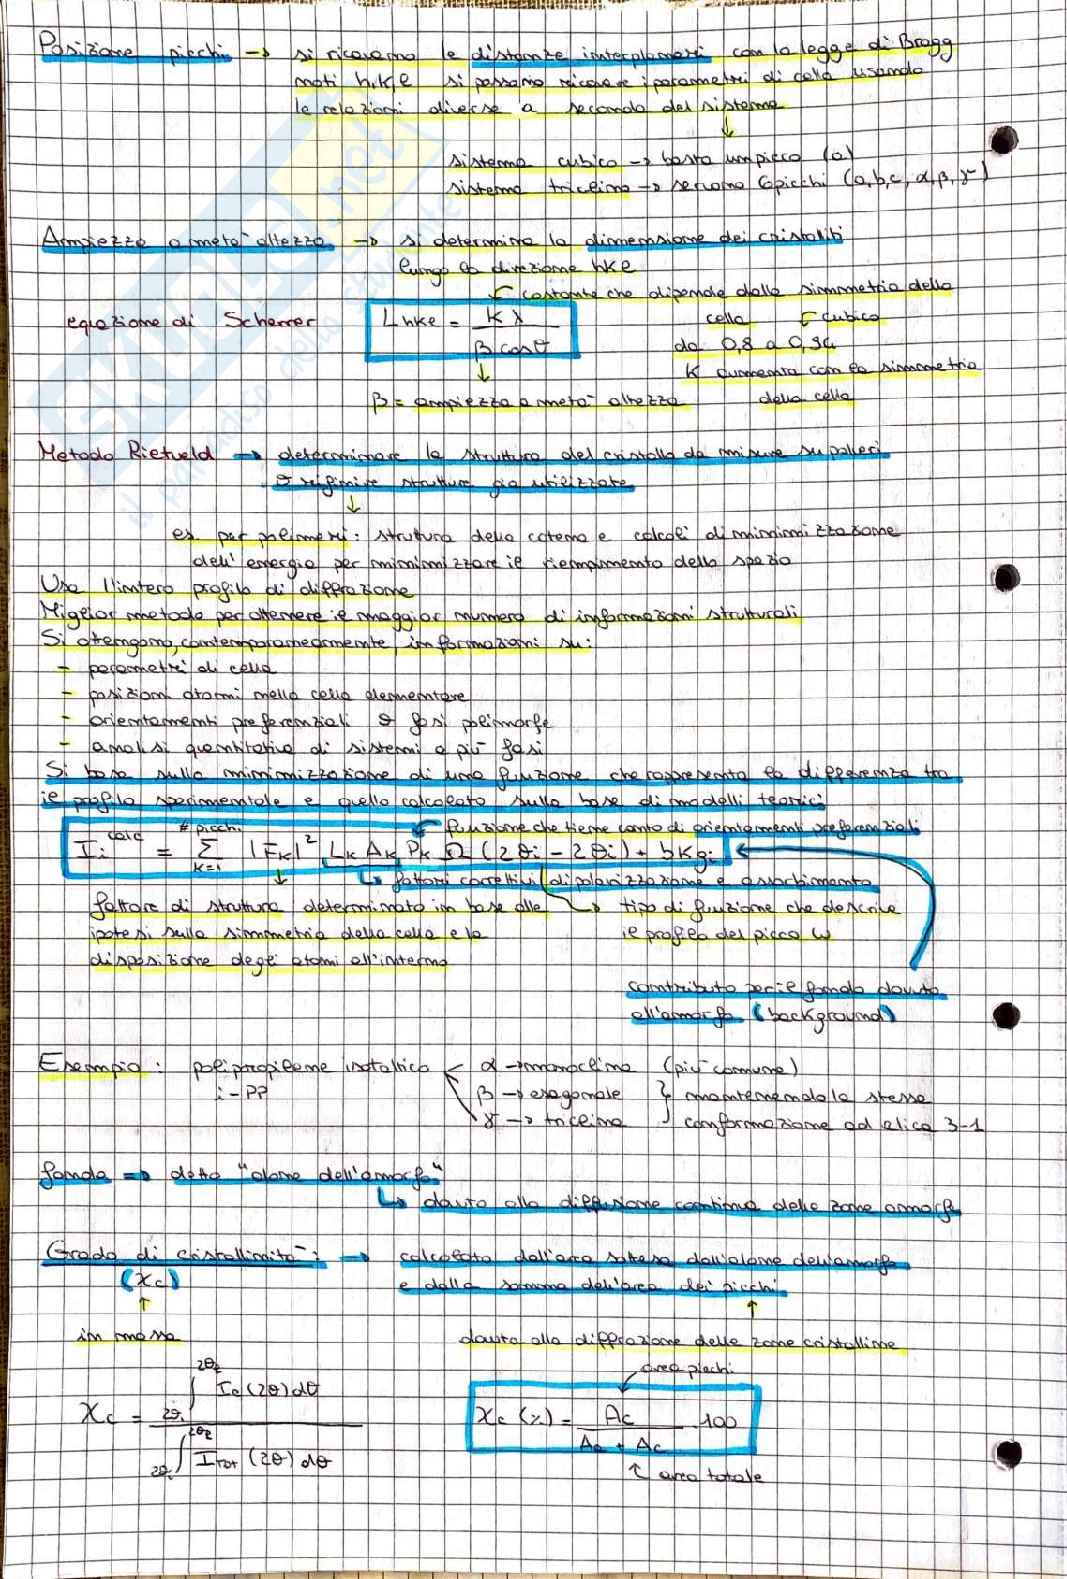 Posizione picchi → si ricavano le distanze interplanari con la legge di Bragg
noti h,k,l si possono ricavare i parametri di cella usando
le relazioni diverse a seconda del sistema
↓
sistema cubico → basta un picco (a)
sistema triclino → servono 6 picchi (a,b,c, α,β,γ)
Ampiezza a metà altezza → si determina la dimensione dei cristaliti
lungo la direzione hkl
costante che dipende dalla simmetria della
cella cubico
equazione di Scherrer L hkl = Kλ / β cosθ
da 0,8 a 0,94
K aumenta con la simmetria
della cella
β = ampiezza a metà altezza
Metodo Rietveld → determinare la struttura del cristallo da misure su polveri
o rifinire strutture già utilizzate
↓
es. per polimeri: struttura della catena e calcoli di minimizzazione
dell'energia per minimizzare il riempimento dello spazio
Usa l'intero profilo di diffrazione
Miglior metodo per ottenere il maggior numero di informazioni strutturali
Si otengono, contemporaneamente, informazioni su:
- parametri di cella
- posizioni atomi nella cella elementare
- orientamenti preferenziali o fasi polimorfe
- analisi quantitativa di sistemi a più fasi
Si basa sulla minimizzazione di una funzione che rappresenta la differenza tra
il profilo sperimentale e quello calcolato sulla base di modelli teorici
funzione che tiene conto di orientamenti preferenziali
Ii calc = Σ k=1 # picchi |Fk|² Lk Ak Pk Ω (2θi - 2θi) + bkgi
fattori correttivi di polarizzazione e assorbimento
fattore di struttura determinato in base alle → tipo di funzione che descrive
ipotesi sulla simmetria della cella e la il profilo del picco ω
disposizione degli atomi all'interno
contributo per il fondo dovuto
all'amorfo (background)
Esempio: polipropilene isotattico α → monoclina (più comune)
i-PP β → esagonale } mantenendo la stessa
γ → triclina } conformazione ad elica 3-1
fondo ⇒ detto "alone dell'amorfo"
↳ dovuto alla diffusione continua delle zone amorfe
Grado di cristallinità: → calcolato dall'area sottesa dall'alone dell'amorfo
(Xc) e dalla somma dell'area dei picchi
↑ ↑
in massa dovuto alla diffrazione delle zone cristalline
area picchi
Xc = ∫ 2θ1 2θ2 Ic (2θ) dθ / ∫ 2θ1 2θ2 ITOT (2θ) dθ
Xc (%) = Ac / Aa + Ac · 100
↑ area totale